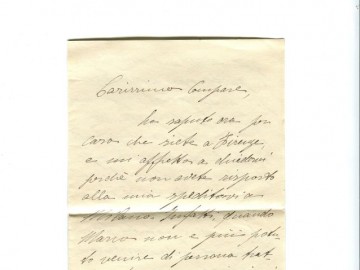 Carissimo Compare,
ho saputo ora per
caso che siete a Firenze
e mi affretto a chiedervi
perchè non avete risposto
alla mia speditavi a
Milano. Infatti, quando
Marco non e più
venire di persona